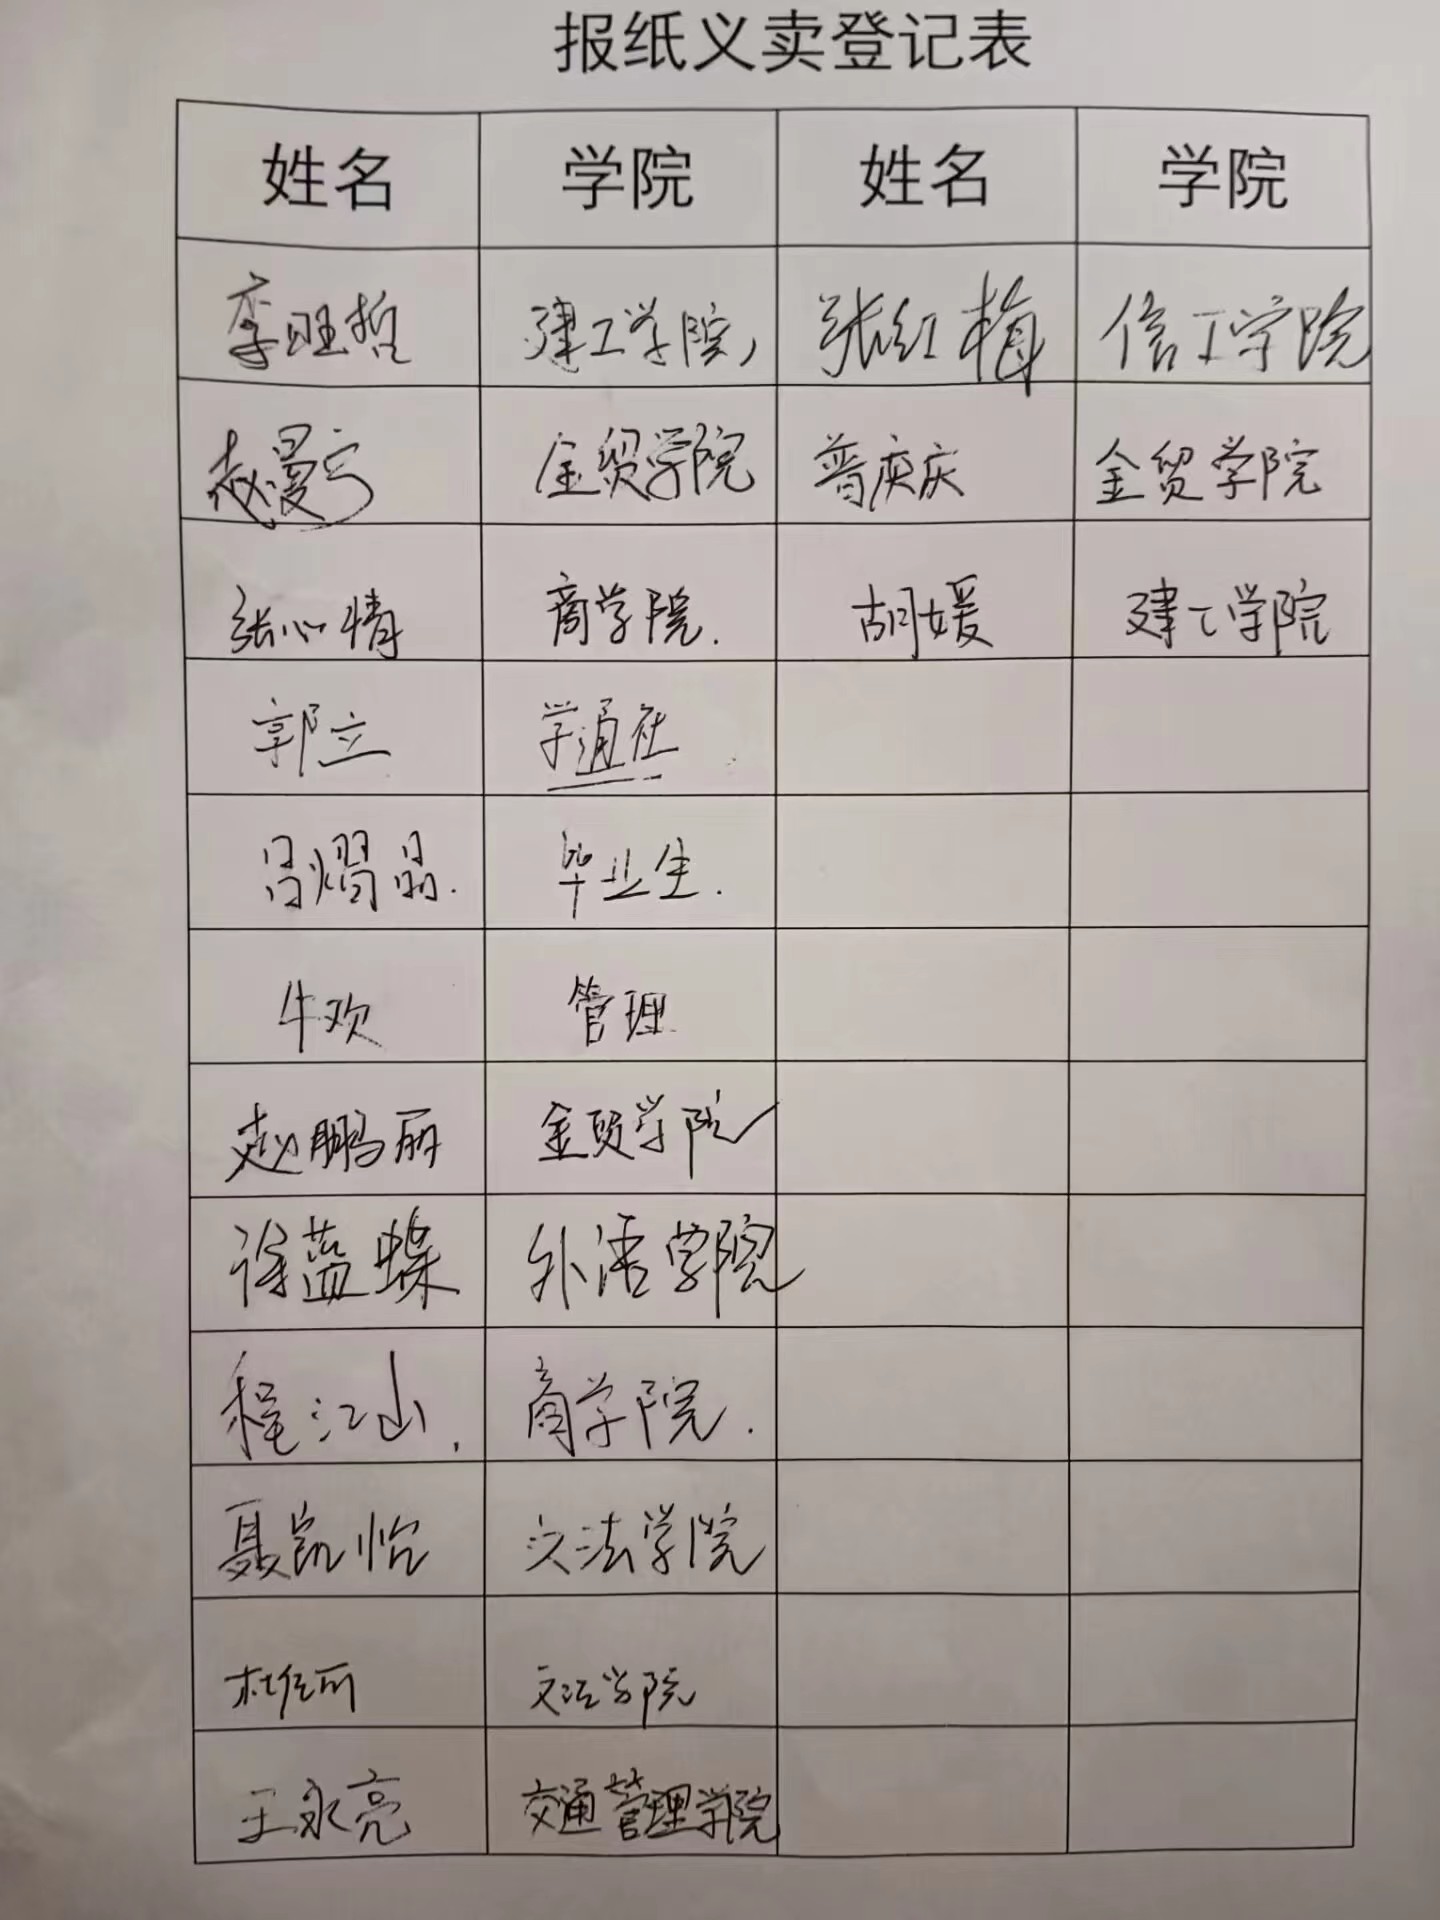 报纸义卖登记表
姓名 学院 姓名 学院
李旺哲 建工学院, 张红梅 信工学院
赵曼宁 金贸学院 普庆庆 金贸学院
张心情 商学院. 胡媛 建工学院
郭立 学通社
吕熠晶. 毕业生.
牛欢 管理
赵鹏丽 金贸学院
徐蓝蝶 外语学院
程江山. 商学院.
聂凯怡 文法学院
杜丽 文法学院
王永亮 交通管理学院